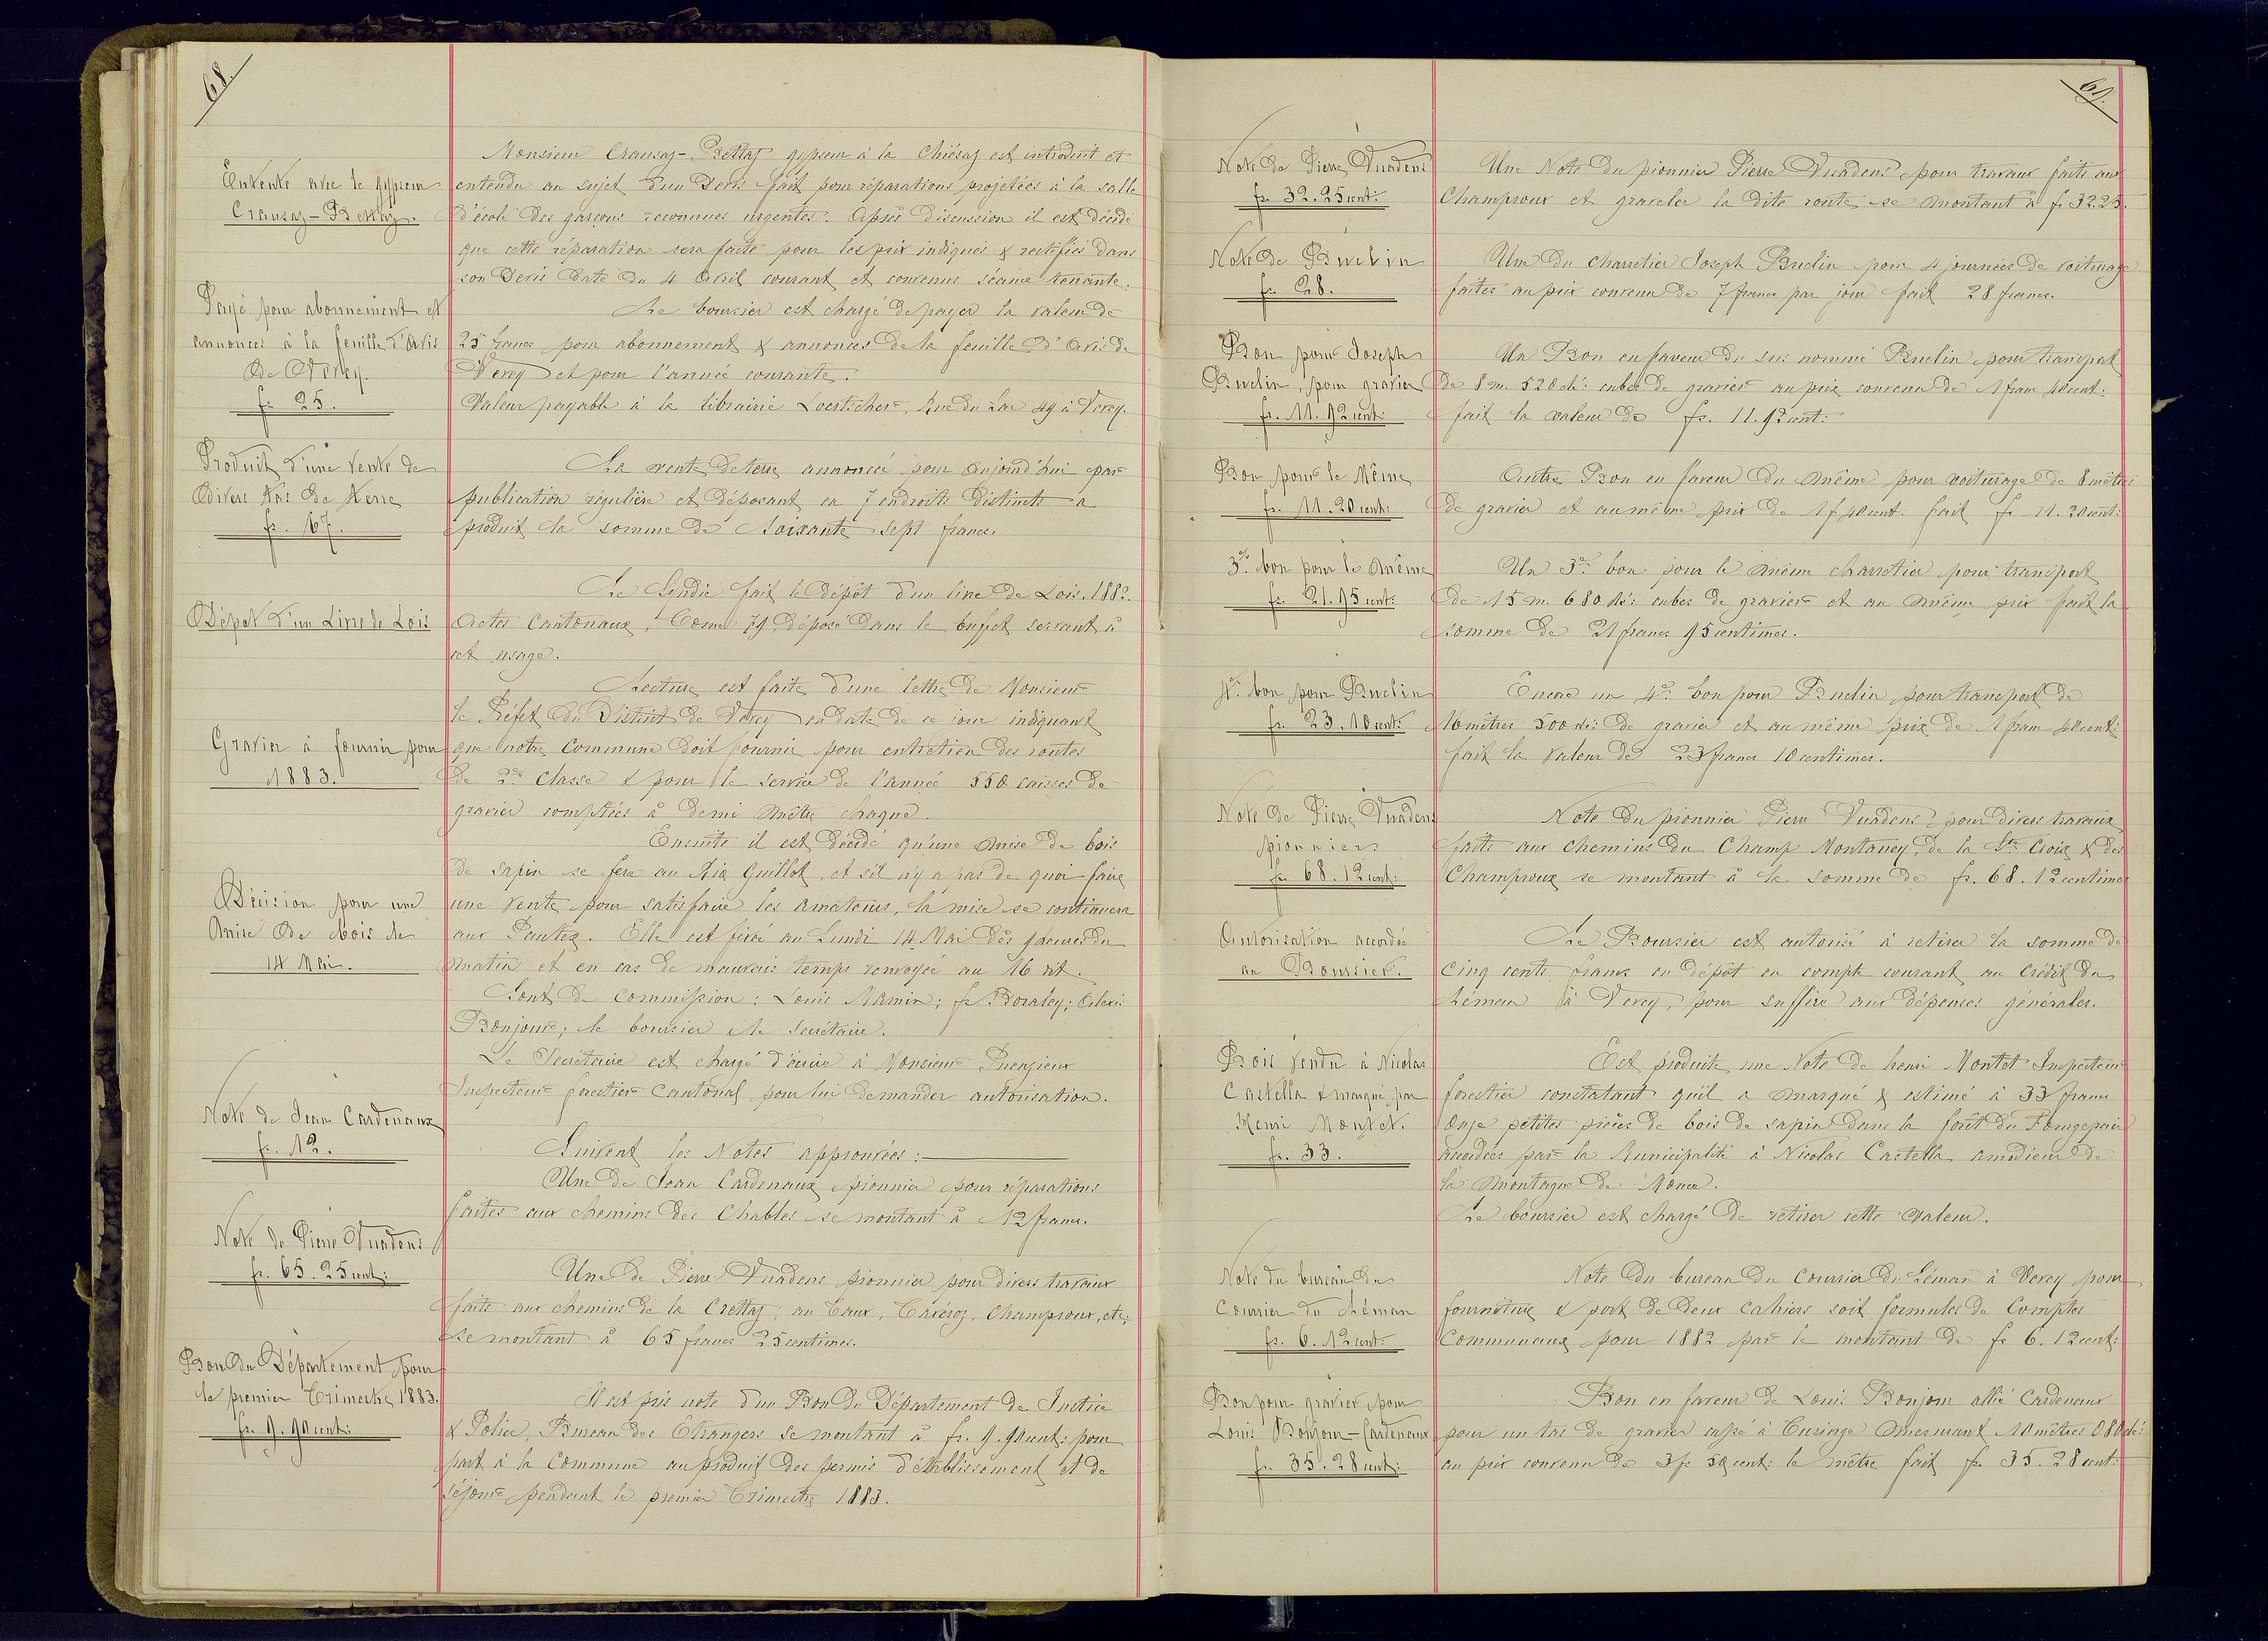 68.
Entente avec le gypseur
Crausaz-Bettaz.
Monsieur Crausaz-Bettaz gypseur à la Chiésaz est introduit et
entendu au sujet d'un Devis fait pour réparations projetées à la salle
d'école des garçons reconnues urgentes. Après discussion il est décidé
que cette réparation sera faite pour les prix indiqués & rectifiés dans
son Devis daté du 4 Avril courant et convenus séance tenante.
Payé pour abonnement et
annonces à la feuille d'Avis
de Vevey.
fr. 25.
Le boursier est chargé de payer la valeur de
25 francs pour abonnement & annonces de la feuille d'Avis de
Vevey et pour l'année courante.
Valeur payable à la librairie Loertscher, Rue du Lac 49 à Vevey.
Produit d'une vente de
divers tas de terre
fr. 67.
La vente de terre annoncée pour aujourd'hui par
publication régulière et déposant en 7 endroits distincts a
produit la somme de Soixante sept francs.
Dépôt d'un Livre de Lois
Le Syndic fait le dépôt d'un livre de Lois. 1882.
Actes Cantonaux, Tome 79, déposé dans le buffet servant à
cet usage.
Gravier à fournir pour
1883.
Lecture est faite d'une lettre de Monsieur
le Préfet du District de Vevey en date de ce jour indiquant
que notre Commune doit fournir pour entretien des routes
de 2de classe & pour le service de l'année 550 caisses de
gravier comptées à demi mètre chaque.
Décision pour une
Mise de bois le
14 Mai.
Ensuite il est décidé qu'une mise de bois
de sapin se fera au Ria Guillot, et s'il n'y a pas de quoi faire
une vente pour satisfaire les amateurs, la mise se continuera
aux Pautex. Elle est fixée au Lundi 14 Mai dès 9 heures du
matin et en cas de mauvais temps renvoyée au 16 dit.
Sont de commission: Louis Mamin; fs Boraley; Alexis
Bonjour; le boursier & le secrétaire.
Le Secrétaire est chargé d'écrire à Monsieur Puenzieux
Inspecteur forestier Cantonal pour lui demander autorisation.
Suivent les Notes approuvées:
Note de Jean Cardenaux
fr. 12.
Une de Jean Cardenaux pionnier pour réparations
faites aux chemins des Chables se montant à 12 francs.
Note de Pierre Vuadens
fr. 65. 25 cent:
Une de Pierre Vuadens pionnier pour divers travaux
faits aux chemins de la Crettaz, au Taux, Tuséroz, Champroux, etc;
se montant à 65 francs 25 centimes.
Bon du Département pour
le premier Trimestre 1883.
fr. 9. 90 cent:
Il est pris note d'un Bon du Département de Justice
& Police, Bureau des Etrangers se montant à fr. 9. 90 cent: pour
part à la Commune au produit des permis d'établissement et de
séjour pendant le premier Trimestre 1883.
69.
Note de Pierre Vuadens
fr. 32. 25 cent:
Une Note du pionnier Pierre Vuadens pour travaux faits aux
Champroux et graveler la dite route se montant à fr 32.25.
Note de Buclin
fr. 28.
Une du charretier Joseph Buclin pour 4 journées de voiturage
faites au prix convenu de 7 francs par jour fait 28 francs.
Bon pour Joseph
Buclin, pour gravier
fr. 11. 92 cent:
Un Bon en faveur du sus nommé Buclin pour transport
de 8 m. 520 dé: cubes de gravier au prix convenu de 1 franc 40 cent:
fait la valeur de fr. 11. 92 cent:
Bon pour le Même
fr. 11. 20 cent:
Autre Bon en faveur du même pour voiturage de 8 mètres
de gravier et au même prix de 1 f 40 cent: fait fr 11. 20 cent:
3e bon pour le même
fr. 21. 95 cent:
Un 3e bon pour le même charretier pour transport
de 15 m. 680 dé: cubes de gravier et au même prix fait la
somme de 21 francs 95 centimes.
4e bon pour Buclin
fr. 23. 10 cent:
Encore un 4e bon pour Buclin pour transport de
16 mètres 500 dé: de gravier et au même prix de 1 franc 40 cent:
fait la valeur de 23 francs 10 centimes.
Note de Pierre Vuadens
pionnier
fr. 68. 12 cent:
Note du pionnier Pierre Vuadens pour divers travaux
faits aux chemins du Champ Montaney, de la Ste Croix & des
Champroux se montant à la somme de fr. 68. 12 centimes
Autorisation accordée
au Boursier.
Le Boursier est autorisé à retirer la somme de
Cinq cents francs en dépôt en compte courant au Crédit du
Léman à Vevey, pour suffire aux dépenses générales.
Bois vendu à Nicolas
Castella & marqué par
Henri Montet.
fr. 33.
Est produite une Note de henri Montet Inspecteur
forestier constatant qu'il a marqué & estimé à 33 francs
Onze petites pièces de bois de sapin dans la forêt du
accordées par la Municipalité à Nicolas Castella amodieur de
la montagne de
Le boursier est chargé de retirer cette valeur.
Note du bureau du
Courrier du Léman
fr. 6. 12 cent:
Note du bureau du Courrier du Léman à Vevey pour
fourniture & port de deux cahiers soit formules de Comptes
Communaux pour 1882 par le montant de fr 6. 12 cent:
Bon pour gravier pour
Louis Bonjour-Cardenaux
fr. 35. 28 cent:
Bon en faveur de Louis Bonjour allié Cardenaux
pour un tas de gravier cassé à Tusinge mesurant 10 mètres 080 dé:
au prix convenu de 3 fr 50 cent: le mètre fait fr 35. 28 cent: